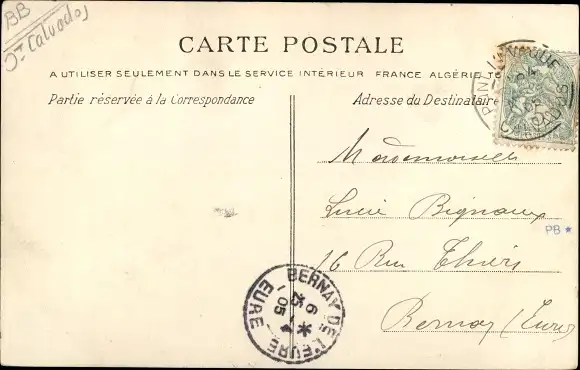 BB
Ct Calvados
CARTE POSTALE
A UTILISER SEULEMENT DANS LE SERVICE INTÉRIEUR FRANCE ALGÉRIE
Partie réservée à la Correspondance
Adresse du Destinataire
CALVADOS
Mademoiselle
Lucie Bignaux
PB*
16 Rue Thiers
Bernay (Eure)
BERNAY DE L'EURE
6
05
EURE